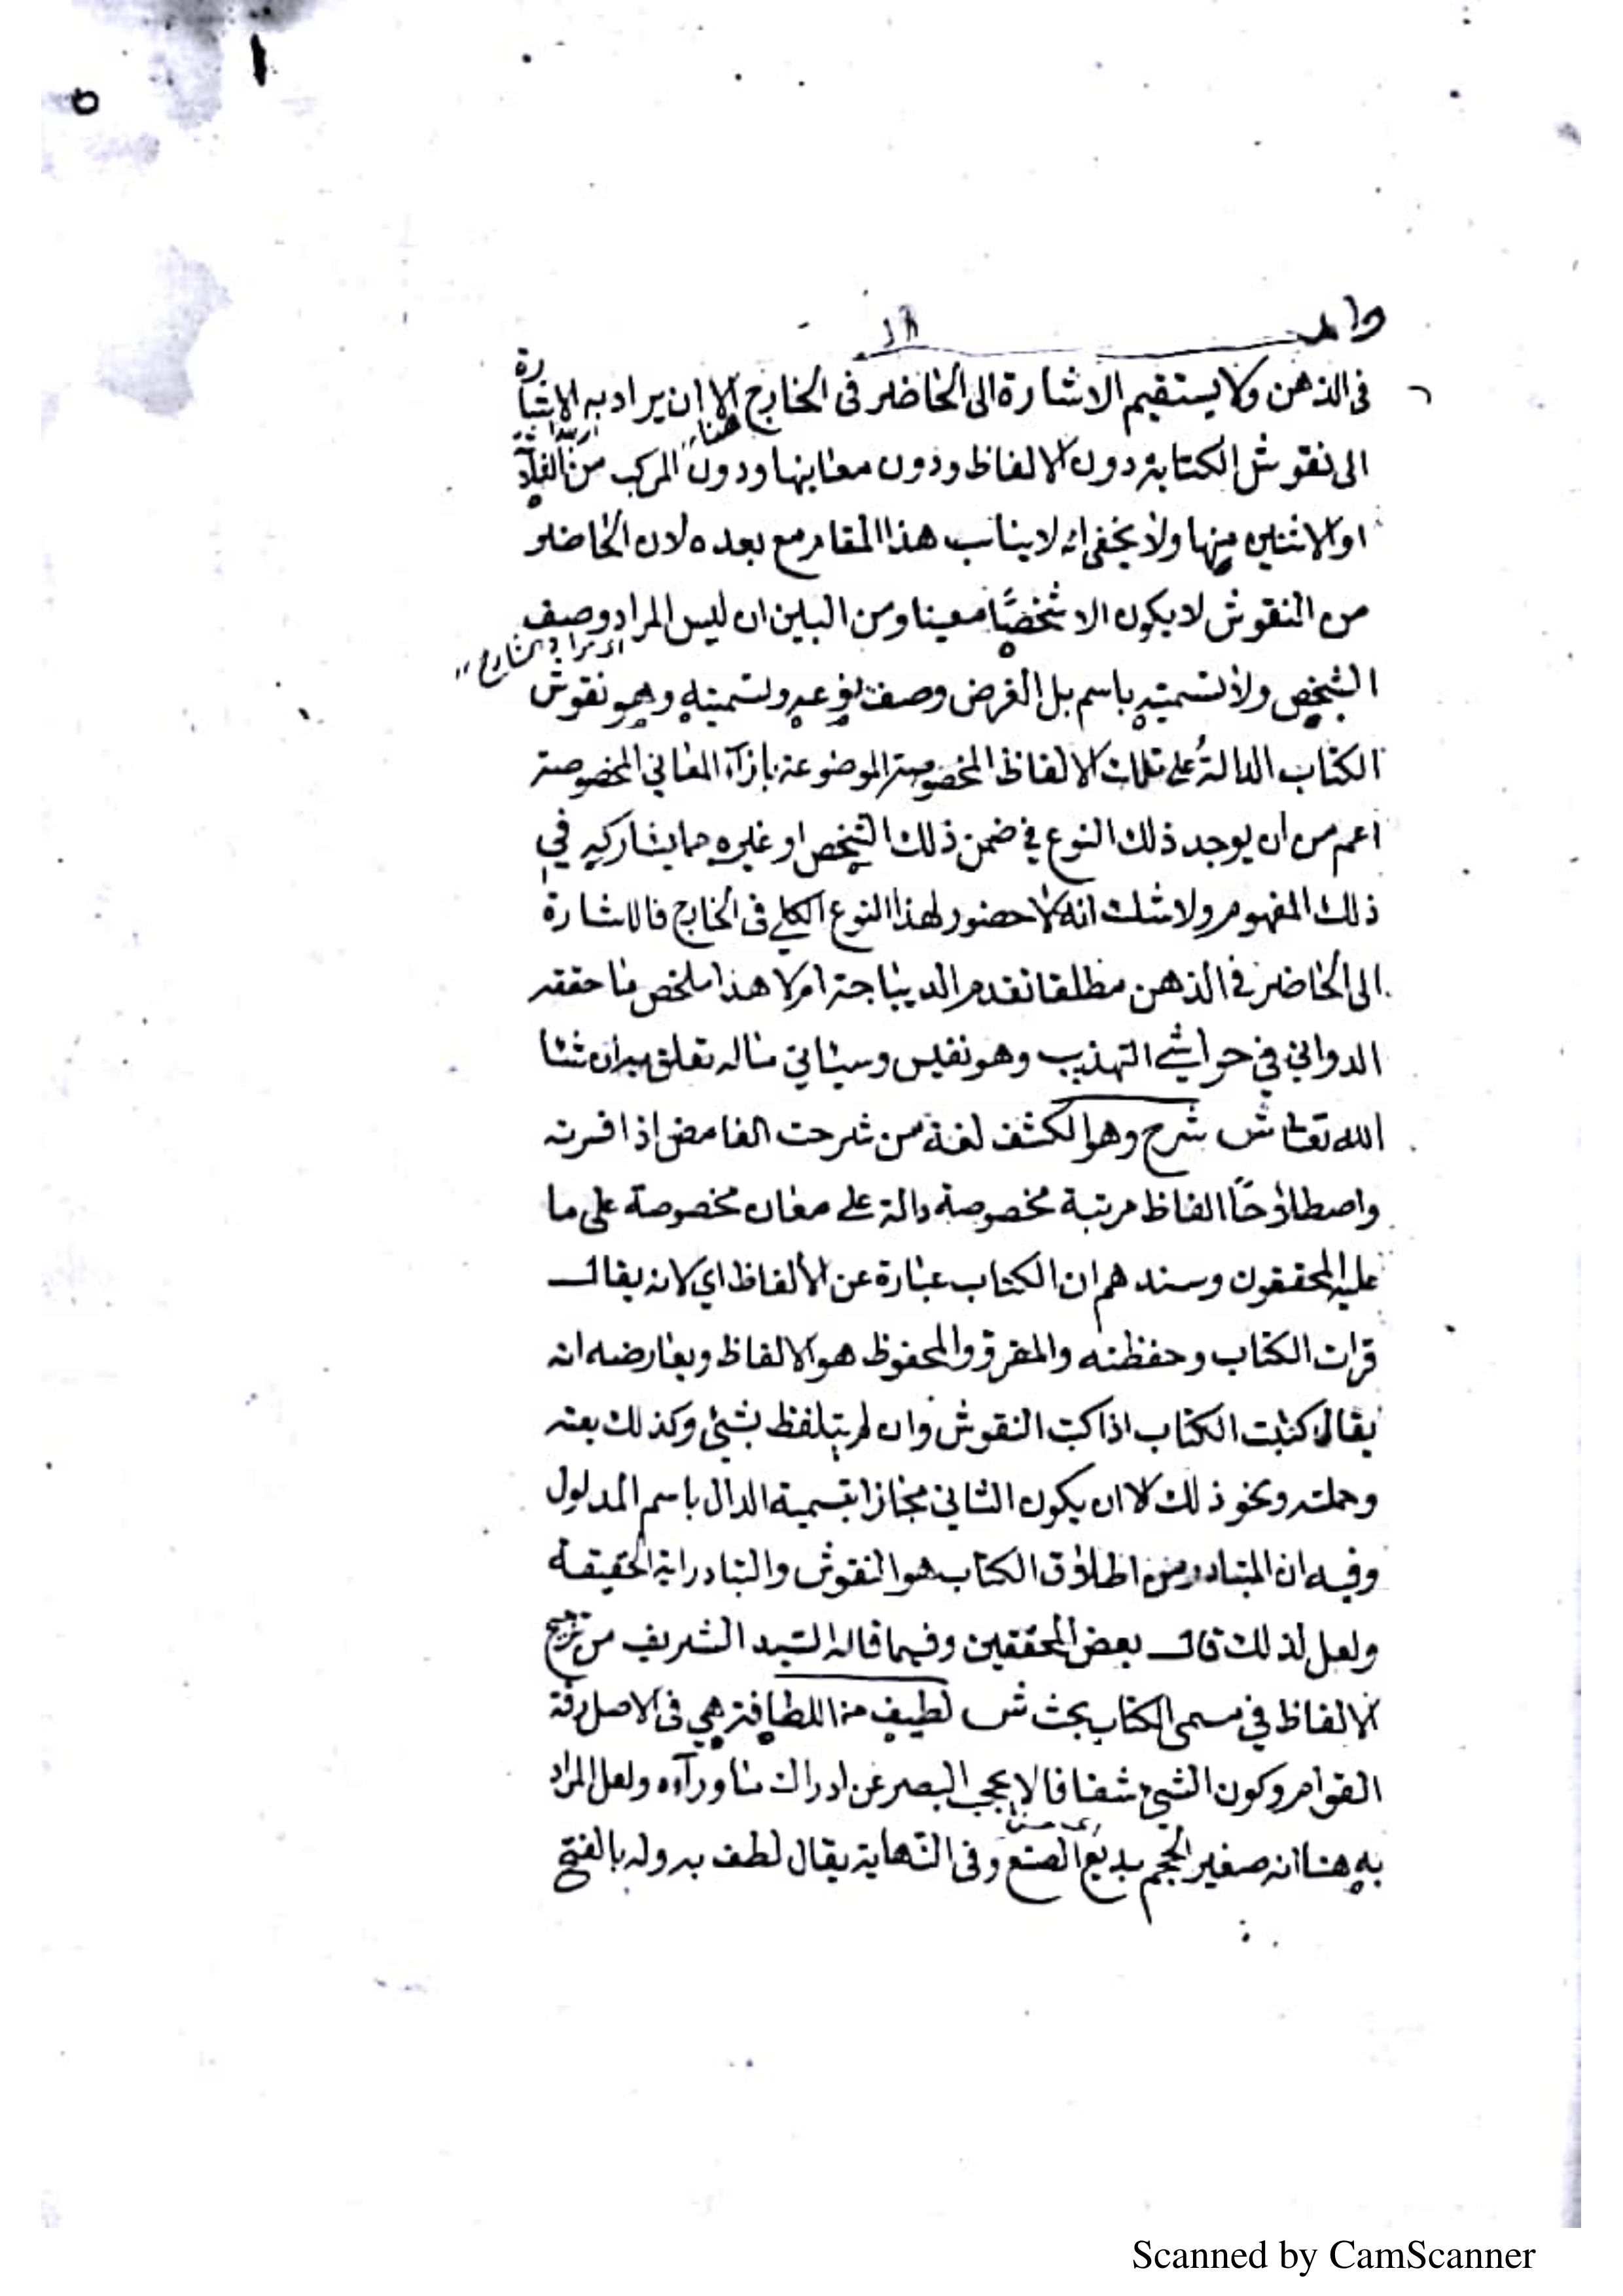 في الذهن ولا يستقيم الاشارة الى الحاضر فى الخارج الا ان يراد به الاشارة
الى نقوش الكتابة دون الالفاظ ودون معانيها ودون المركب من الثلاثة
او الاثنين منها ولا يخفى انه لا يناسب هذا المقام مع بعده لان الحاضر
من النقوش لا يكون الا شخصًا معينا ومن البين ان ليس المراد وصف
الشخص ولا تسميته باسم بل الغرض وصف نوعه وتسميته وهو نقوش
الكتاب الدالةُ على تلك الالفاظ المخصوصة الموضوعة بازآء المعاني المخصوصة
اعم من ان يوجد ذلك النوع في ضمن ذلك الشخص او غيره مما يشاركه في
ذلك المفهوم ولا شك انه لا حضور لهذا النوع الكلي في الخارج فالاشارة
الى الحاضر في الذهن مطلقا تقدم الديباجة ام لا هذا ملخص ما حققه
الدواني في حواشي التهذيب وهو نفيس وسيأتي ماله تعلق به ان شاء
الله تعالى ش شرح وهو الكشف لغة من شرحت الغامض اذا فسرته
واصطلاحًا الفاظ مرتبة مخصوصة دالة على معان مخصوصة على ما
عليه المحققون وسندهم ان الكتاب عبارة عن الالفاظ اي لانه يقال
قرات الكتاب وحفظته والمقروّ والمحفوظ هو الالفاظ ويعارضه انه
يقال كتبت الكتاب اذا كتبت النقوش وان لم يتلفظ بشئ وكذلك بعته
وحملته ونحو ذلك لا ان يكون الثاني مجازا بتسمية الدال باسم المدلول
وفيه ان المتبادر من اطلاق الكتاب هو النقوش والتبادر اية الحقيقة
ولعل لذلك قال بعض المحققين وفيما قاله السيد الشريف من ترجيح
الالفاظ في مسمى الكتاب بحث ش لطيف من اللطافة هي فى الاصل رقة
القوام وكون الشئ شفافا لا يحجب البصر عن ادراك ما ورآءه ولعل المراد
به هنا انه صغير الحجم بديع الصنع وفى النهاية يقال لطف به وله بالفتح
Scanned by CamScanner